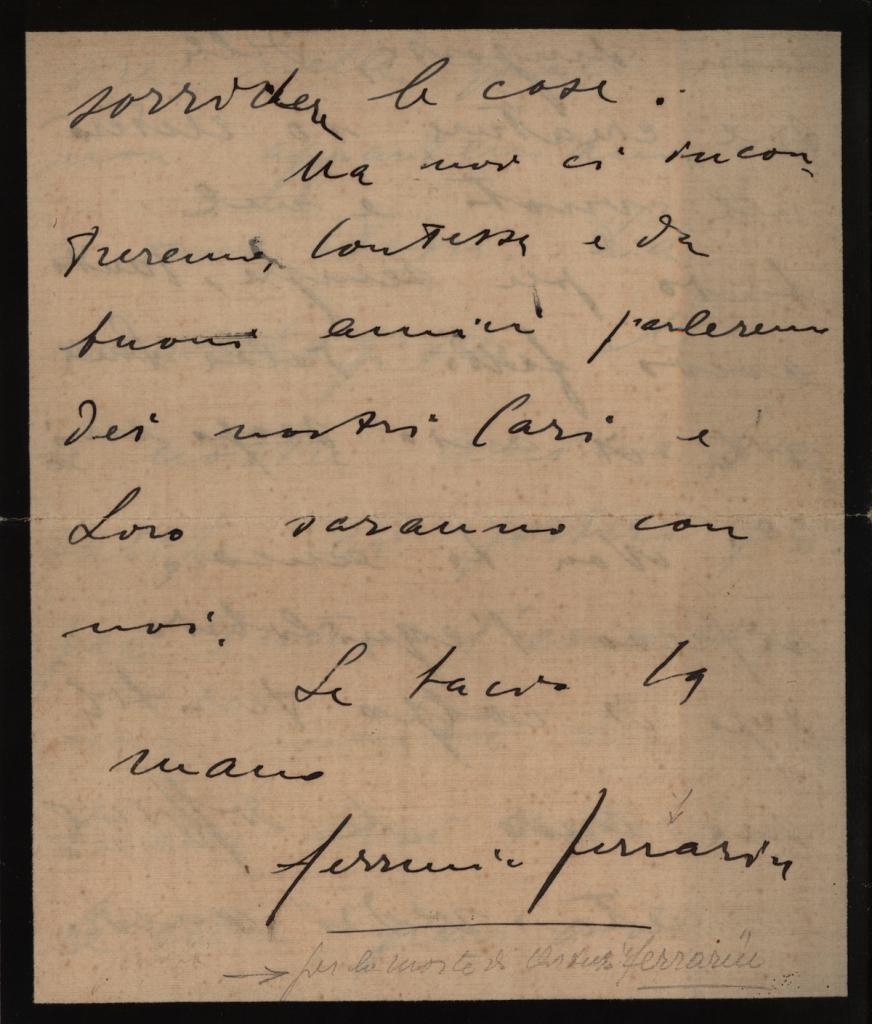 sorridere le cose.
Ma noi ci incon-
treremo, Contessa e da
buoni amici parleremo
dei nostri Cari e
Loro saranno con
noi.
Le bacio la
mano
Ferrarin
per la morte di Ferrarin